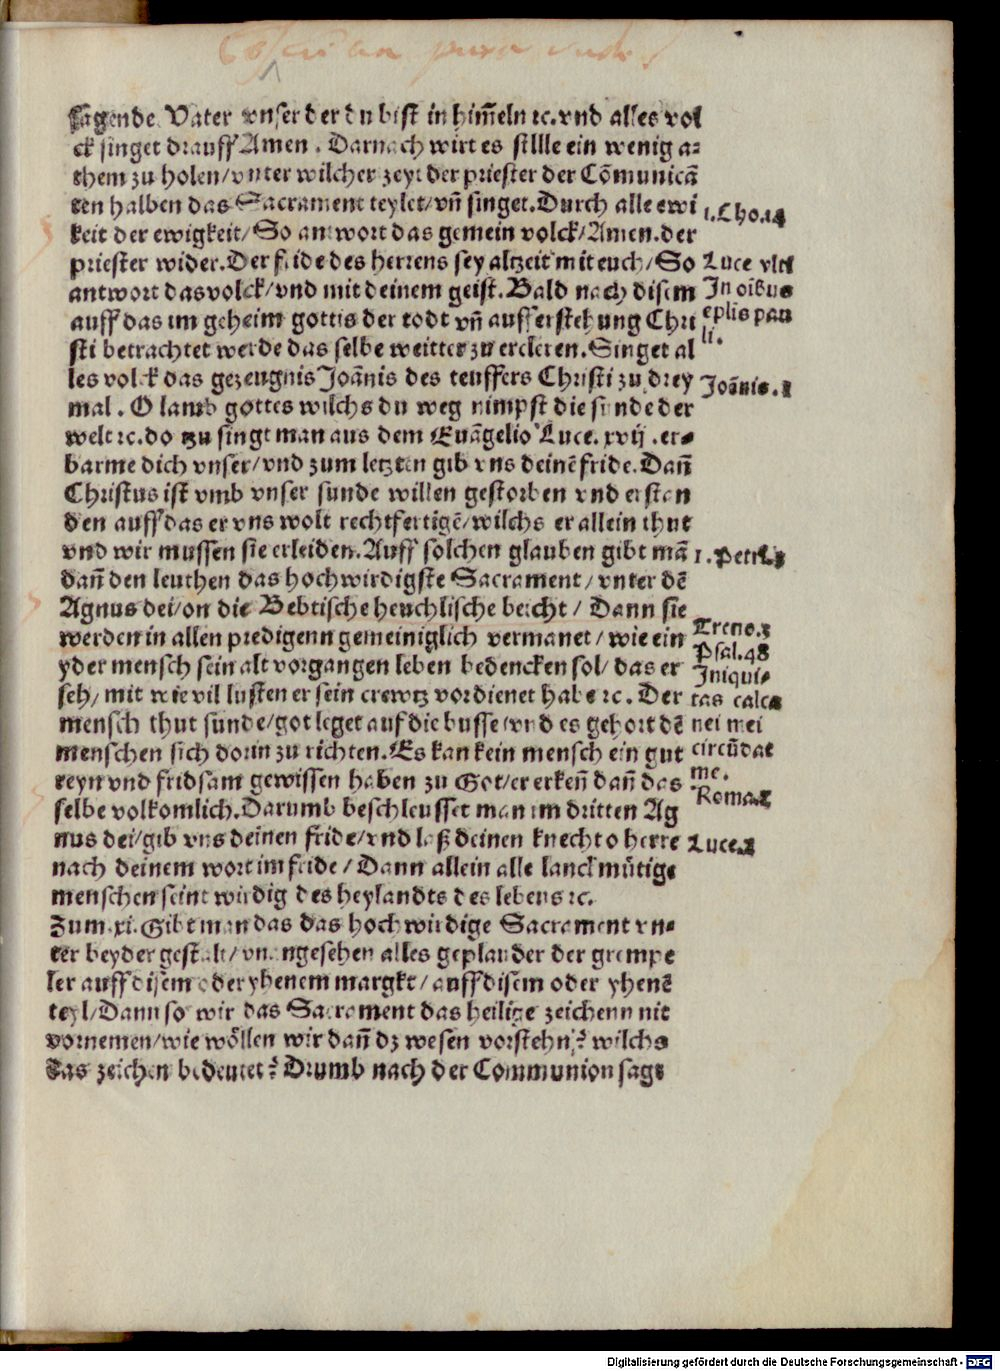 sagende Vater vnser der du bist in him̄eln ꝛc. vnd alles vol
ck singet drauff Amen. Darnach wirt es stillle ein wenig a⸗
them zu holen/vnter wilcher zeyt der priester der Cōmunicā
ten halben das Sacrament teylet/vn̄ singet. Durch alle ewi
keit der ewigkeit/So antwort das gemein volck/Amen. der
priester wider. Der fride des herrens sey altzeit mit euch/So
antwort das volck/vnd mit deinem geist. Bald nach disem
auff das im geheim gottis der todt vn̄ aufferstehung Chri
sti betrachtet werde das selbe weitter zu ercleren. Singet al
les volck das gezeugnis Joānis des teuffers Christi zu drey
mal. O lamb gottes wilchs du weg nimpst die sunde der
welt ꝛc. do tzu singt man aus dem Euāgelio Luce. xvij. er⸗
barme dich vnser/vnd zum letzten gib vns deinē fride. Dan̄
Christus ist vmb vnser sunde willen gestorben vnd erstan
den auff das er vns wolt rechtfertigē/wilchs er allein thut
vnd wir mussen sie erleiden. Auff solchen glauben gibt mā
dan̄ den leuthen das hochwirdigste Sacrament/vnter dē
Agnus dei/on die Bebtische heuchlische beicht/ Dann sie
werden in allen predigenn gemeiniglich vermanet/wie ein
yder mensch sein alt vorgangen leben bedencken sol/das er
seh/mit wie vil lusten er sein crewtz vordienet habe ꝛc. Der
mensch thut sunde/got leget auf die busse/vnd es gehort dē
menschen sich dorin zu richten. Es kan kein mensch ein gut
reyn vnd fridsam gewissen haben zu Got/er erken̄ dan̄ das
selbe volkomlich. Darumb beschleusset man im dritten Ag
nus dei/gib vns deinen fride/vnd laß deinen knecht o herre
nach deinem wort im fride/Dann allein alle lanckmütige
menschen seint wirdig des heylandts des lebens ꝛc.
Zum. xi. Gibt man das das hochwirdige Sacrament vn⸗
ter beyder gestalt/vnangesehen alles geplauder der grempe
ler auff disem oder yhenem margkt/auff disem oder yhenē
teyl/Dann so wir das Sacrament das heilige zeichenn nit
vornemen/wie wöllen wir dan̄ dz wesen vorstehn? wilchs
das zeichen bedeutet? Drumb nach der Communion sagt
1. Cho. 14
Luce vlti
In oībus
eplis pau
li.
Joānis. 1
1. Petri. 3
Treno. 3
Psal. 48
Iniqui⸗
tas calca
nei mei
circūdat
me.
Roma. 2
Luce. 2
Digitalisierung gefördert durch die Deutsche Forschungsgemeinschaft - DFG